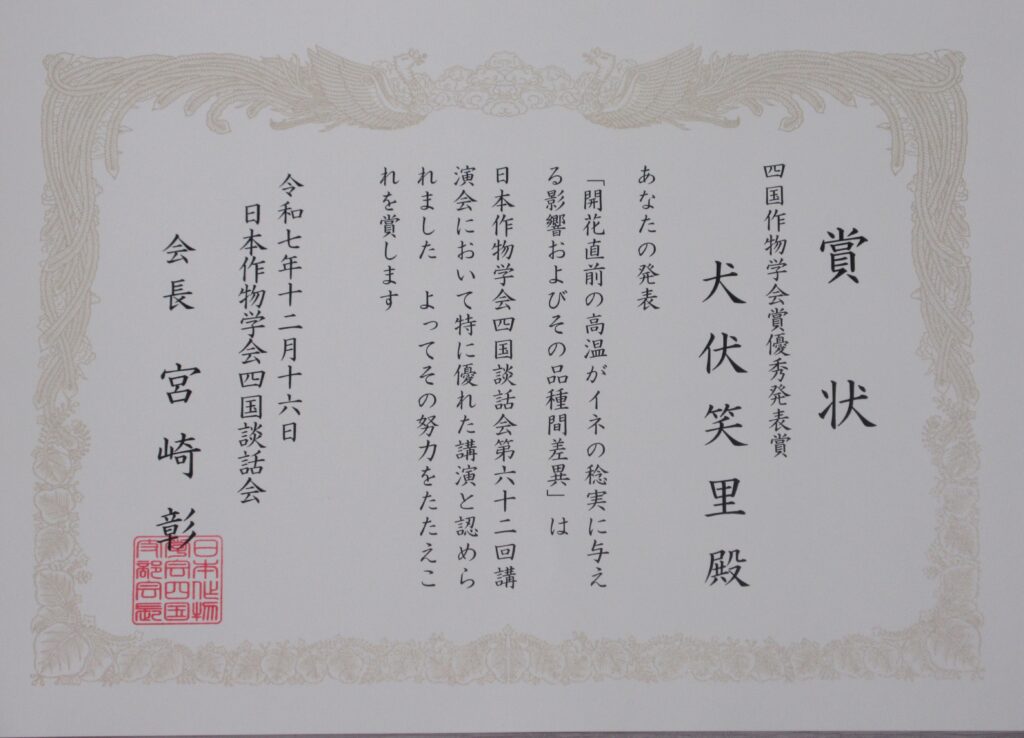 賞状
四国作物学会賞優秀発表賞
犬伏笑里殿
あなたの発表
「開花直前の高温がイネの稔実に与え
る影響およびその品種間差異」は
日本作物学会四国談話会第六十二回講
演会において特に優れた講演と認めら
れました　よってその努力をたたえこ
れを賞します
令和七年十二月十六日
日本作物学会四国談話会
会長　宮崎彰
日本作物
学会四国
支部会長